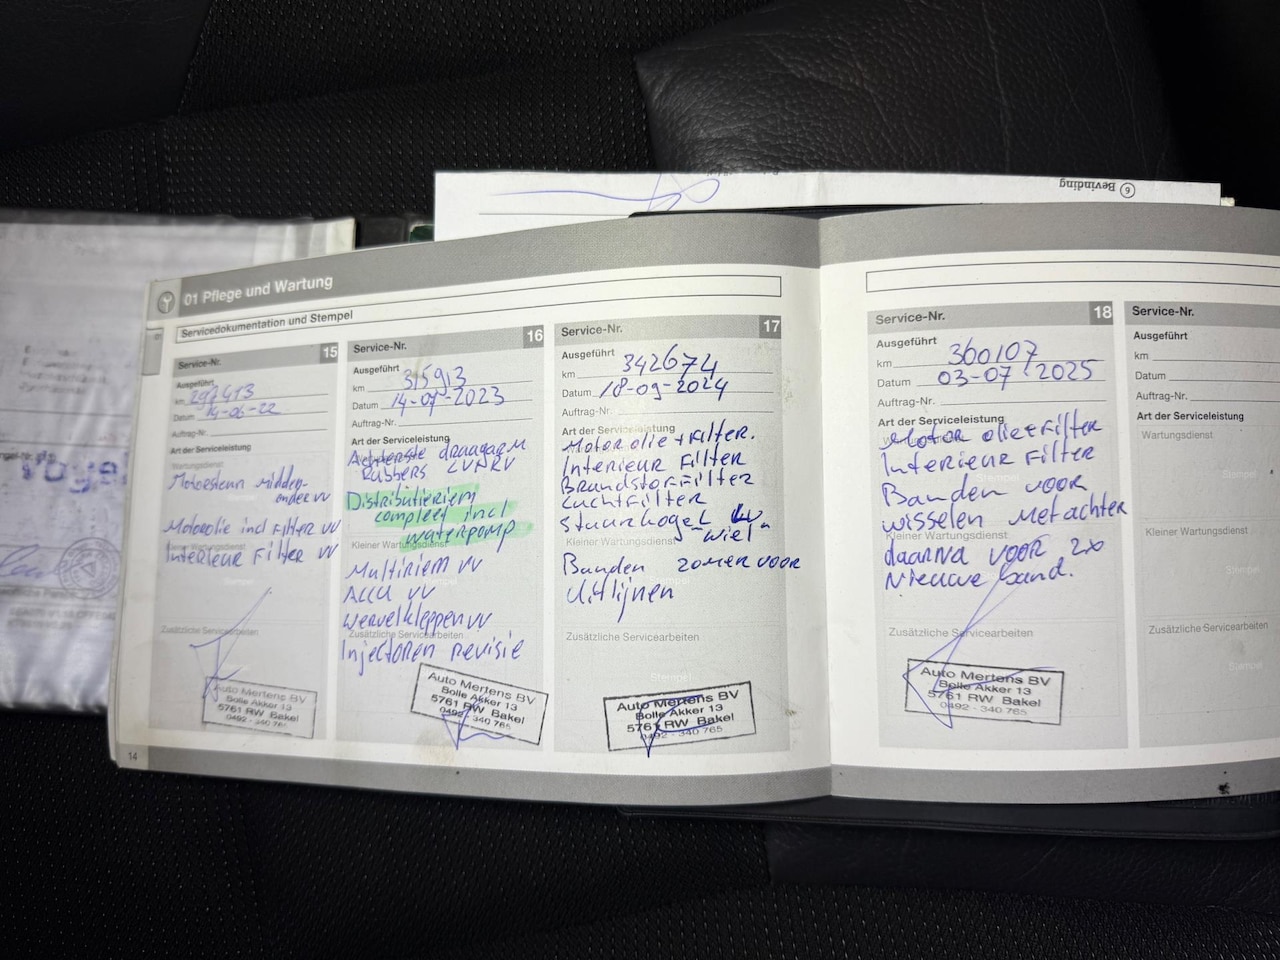 6 Bevinding
01 Pflege und Wartung
Servicedokumentation und Stempel
Service-Nr. 15
Ausgeführt
km 297413
Datum 14-06-22
Auftrag-Nr.
Art der Serviceleistung
Wartungsdienst
Motorsteun midden-
onder vv
Motorolie incl Filter vv
Kleiner Wartungsdienst
Interieur Filter vv
Stempel
Zusätzliche Servicearbeiten
Auto Mertens BV
Bolle Akker 13
5761 RW Bakel
0492 - 340 765
Service-Nr. 16
Ausgeführt
km 315913
Datum 14-07-2023
Auftrag-Nr.
Art der Serviceleistung
Achterste draagarm
Rubbers LV+RV
Distributieriem
compleet incl
waterpomp
Kleiner Wartungsdienst
Multiriem vv
Accu vv
wervelkleppen vv
Zusätzliche Servicearbeiten
Injectoren revisie
Auto Mertens BV
Bolle Akker 13
5761 RW Bakel
0492 - 340 765
Service-Nr. 17
Ausgeführt
km 342674
Datum 18-09-2024
Auftrag-Nr.
Art der Serviceleistung
Motorolie + Filter.
Interieur Filter
Brandstof Filter
Luchtfilter
Stuurkogel
wiel
Kleiner Wartungsdienst
Banden zomer voor
Uitlijnen
Zusätzliche Servicearbeiten
Stempel
Auto Mertens BV
Bolle Akker 13
5761 RW Bakel
0492 - 340 765
14
Service-Nr. 18
Ausgeführt
km 360107
Datum 03-07-2025
Auftrag-Nr.
Art der Serviceleistung
Motor olie+Filter
Interieur Filter
Banden voor
wisselen met achter
Kleiner Wartungsdienst
daarna voor 2x
Nieuwe band.
Zusätzliche Servicearbeiten
Auto Mertens BV
Bolle Akker 13
5761 RW Bakel
0492 - 340 765
Service-Nr.
Ausgeführt
km
Datum
Auftrag-Nr.
Art der Serviceleistung
Wartungsdienst
Stempel
Kleiner Wartungsdienst
Stempel
Zusätzliche Servicearbeiten
Stempel